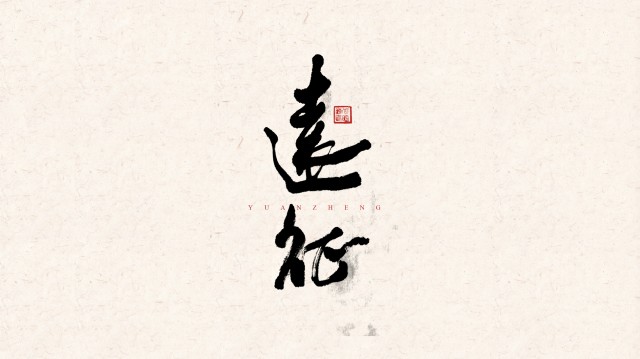 遠
YUANZHENG
征